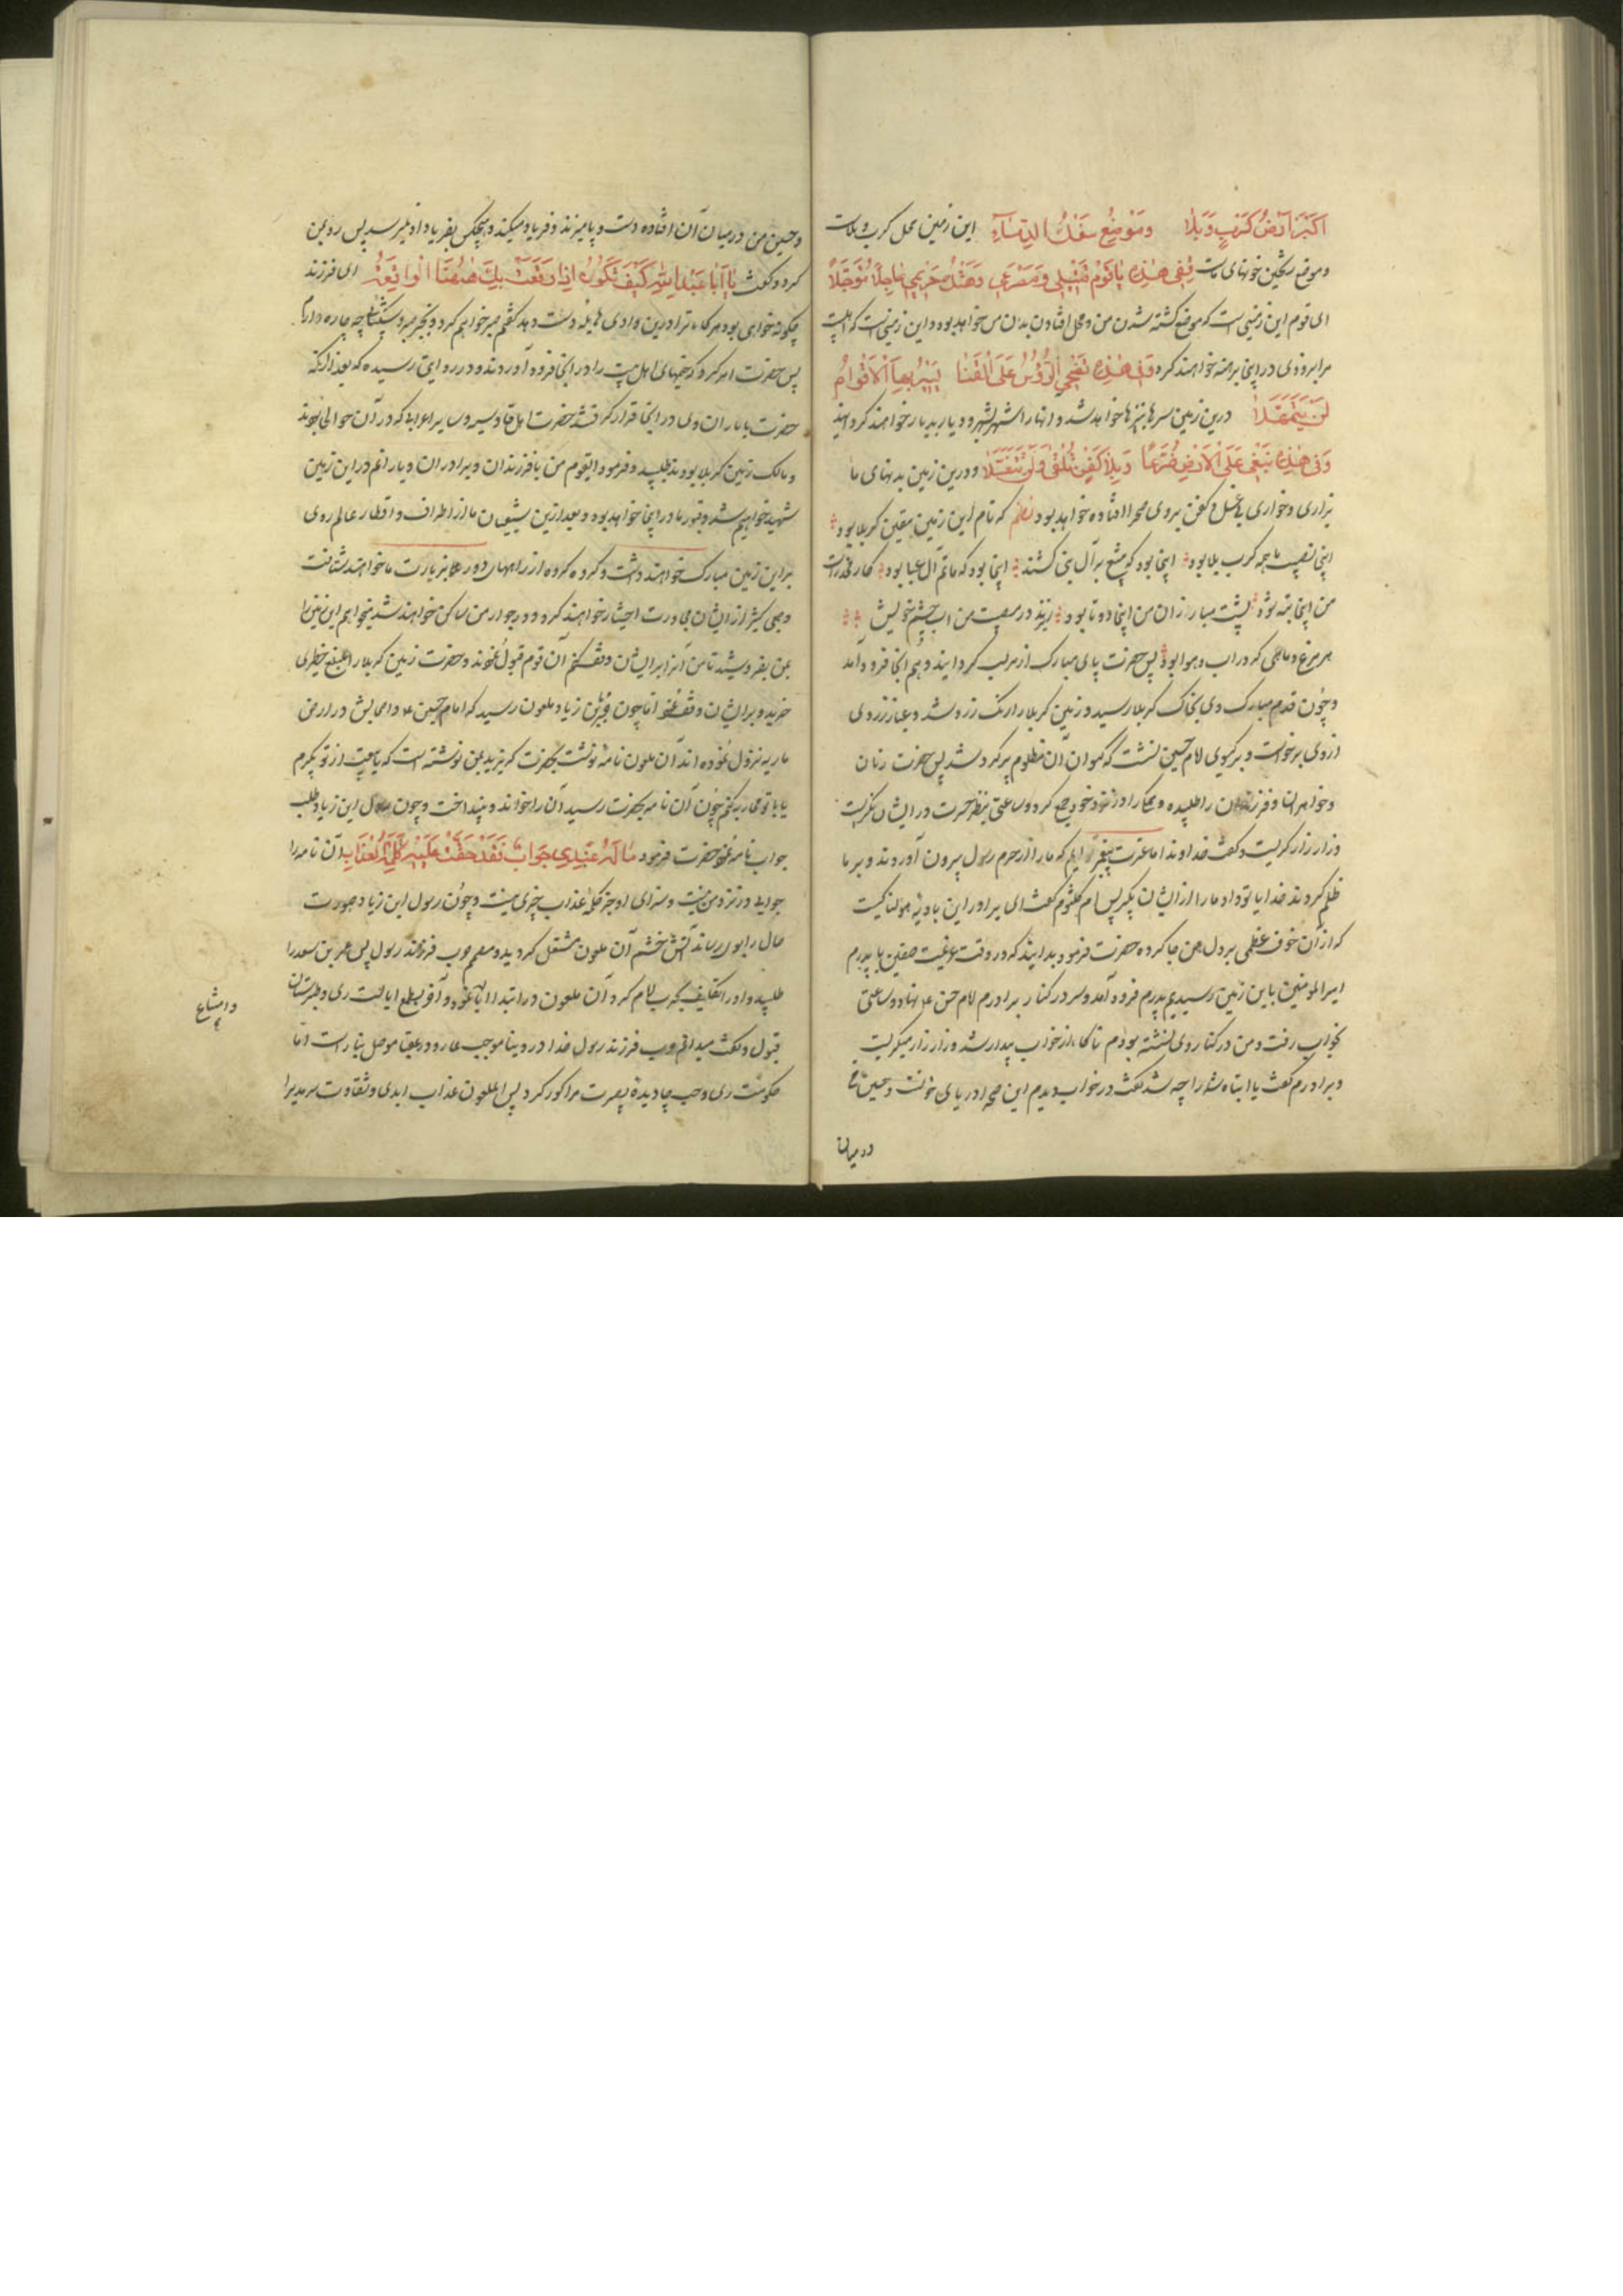 اکبر ارض کرب و بلا و موضع سفک الدماء این زمین محل کرب و بلاست
و موضع ریختن خونهای ماست ففی هذه یا قوم قتلی و مصرعی و هتک حریمی عاجلا مؤجلا
ای قوم این زمینی است که موضع کشته شدن من و محل افتادن بدن من خواهد بود و این زمینیست که اهلبیت
مرا بروی در اینجا برهنه خواهند کرد و فی هذه تضحی الرؤس علی القنا یسیر بها الاقوام
لن یتمهلا درین زمین سرها بنیزها خواهد شد و انها را شهر بشهر و دیار بدیار خواهند گردانید
و فی هذه نبقی علی الارض ضرعا و بلا کفن نلقی ولن نتغسلا و درین زمین بدنهای ما
بزاری و خواری بی غسل و کفن بروی صحرا افتاده خواهد بود نظم که نام این زمین بیقین کربلا بود
اینجا نصیب ما همه کرب بلا بود اینجا بود که تیغ بر آل نبی کشند اینجا بود که ماتم آل عبا بود
من اینجا پشت مبارزان من اینجا دو تا بود ریزد در مصیبت من اب چشم خویش
هر مرغ و ماهی که در اب و هوا بود پس حضرت پای مبارک از مرکب گردانید و هم انجا فرود آمد
و چون قدم مبارک وی بخاک کربلا رسید و زمین کربلا را رنگ زرد شد و غبار زردی
از وی برخواست و بر گیسوی امام حسین نشست که گیسوان آن مظلوم پر گرد شد پس حضرت زنان
و خواهران و فرزندان را طلبیده و همکی را در نزد خود جمع کرد و ساعتی بنظر حسرت در ایشان نگریست
و زار زار گریست و گفت خداوندا ما عترت پیغمبر توایم که ما را از حرم رسول بیرون آوردند و بر ما
ظلم کردند خدایا تو داد ما را از ایشان بگیر پس ام کلثوم گفت ای برادر این بادیه هولناکیست
که از آن خوف عظیمی بر دل من جا کرده حضرت فرمود بدانید که در وقت عزیمت صفین با پدرم
امیرالمؤمنین باین زمین رسیدیم پدرم فرود آمد و سر در کنار برادرم امام حسن ع نهاد و ساعتی
بخواب رفت و من در کنار وی نشسته بودم ناگاه از خواب بیدار شد و زار زار میگریست
و برادرم گفت یا ابتاه شما را چه شد گفت در خواب دیدم این صحرا دریای خونست و حسین من
درمیان
و حسین من درمیان آن افتاده دست و پا میزند و فریاد میکند و هیچکس بفریاد او نمیرسد پس رو بمن
کرد و گفت یا ابا عبد الله کیف تکون اذا وقعت بک هیهنا الواقعة ای فرزند
چگونه خواهی بود هر گاه ترا درین وادی هایله دست دهد گفتم صبر خواهم کرد و بجز صبر و شکیبائی چه چاره دارم
پس حضرت امر کرد که خیمهای اهل بیت را در انجا فرود آوردند و در روایتی رسیده که بعد از آنکه
حضرت با یاران وی در انجا قرار گرفتند حضرت اهل قادسیه و سایر اعراب که در آن حوالی بودند
و مالک زمین کربلا بودند طلبید و فرمود ایقوم من با فرزندان و برادران و یارانم در این زمین
شهید خواهیم شد و قبور ما در اینجا خواهد بود و بعد ازین شیعیان ما از اطراف و اقطار عالم روی
بر این زمین مبارک خواهند داشت و گروه گروه از راههای دور بزیارت ما خواهند شتافت
و جمعی کثیر از ایشان مجاورت اختیار خواهند کرد و در جوار من ساکن خواهند شد میخواهم این زمین را
بمن بفروشید تا من آنرا بر ایشان وقف کنم آن قوم قبول نمودند و حضرت زمین کربلا را بمبلغ خطیری
خرید و بر ایشان وقف نمود اما چون خبر به ابن زیاد ملعون رسید که امام حسین ع و اصحابش در ارض
ماریه نزول نموده اند آن ملعون نامه نوشت بحضرت که یزید بمن نوشته است که یا بیعت از تو بگیرم
یا با تو محاربه کنم چون آن نامه بحضرت رسید آن را خواند و بینداخت و چون رسول ابن زیاد طلب
جواب نامه نمود حضرت فرمود ما له عندی جواب لقد حقت علیه کلمة العذاب آن نامه را
جوابی در نزد من نیست و سزای او جز کلمه عذاب چیزی نیست و چون رسول ابن زیاد صورت
حال را بوی رساند آتش خشم آن ملعون مشتعل گردید و مصمم حرب فرزند رسول پس عمر بن سعد را
طلبید و او را تکلیف بحرب امام کرد آن ملعون در ابتدا ابا نموده و آخر بطمع ایالت ری و طبرستان
قبول و گفت میدانم حرب فرزند رسول خدا در دنیا موجب عار و در عقبا موصل بنار است اما
حکومت ری و حب جاه دیدۀ بصیرت مرا کور کرد پس الملعون عذاب ابدی و شقاوت سرمدی را